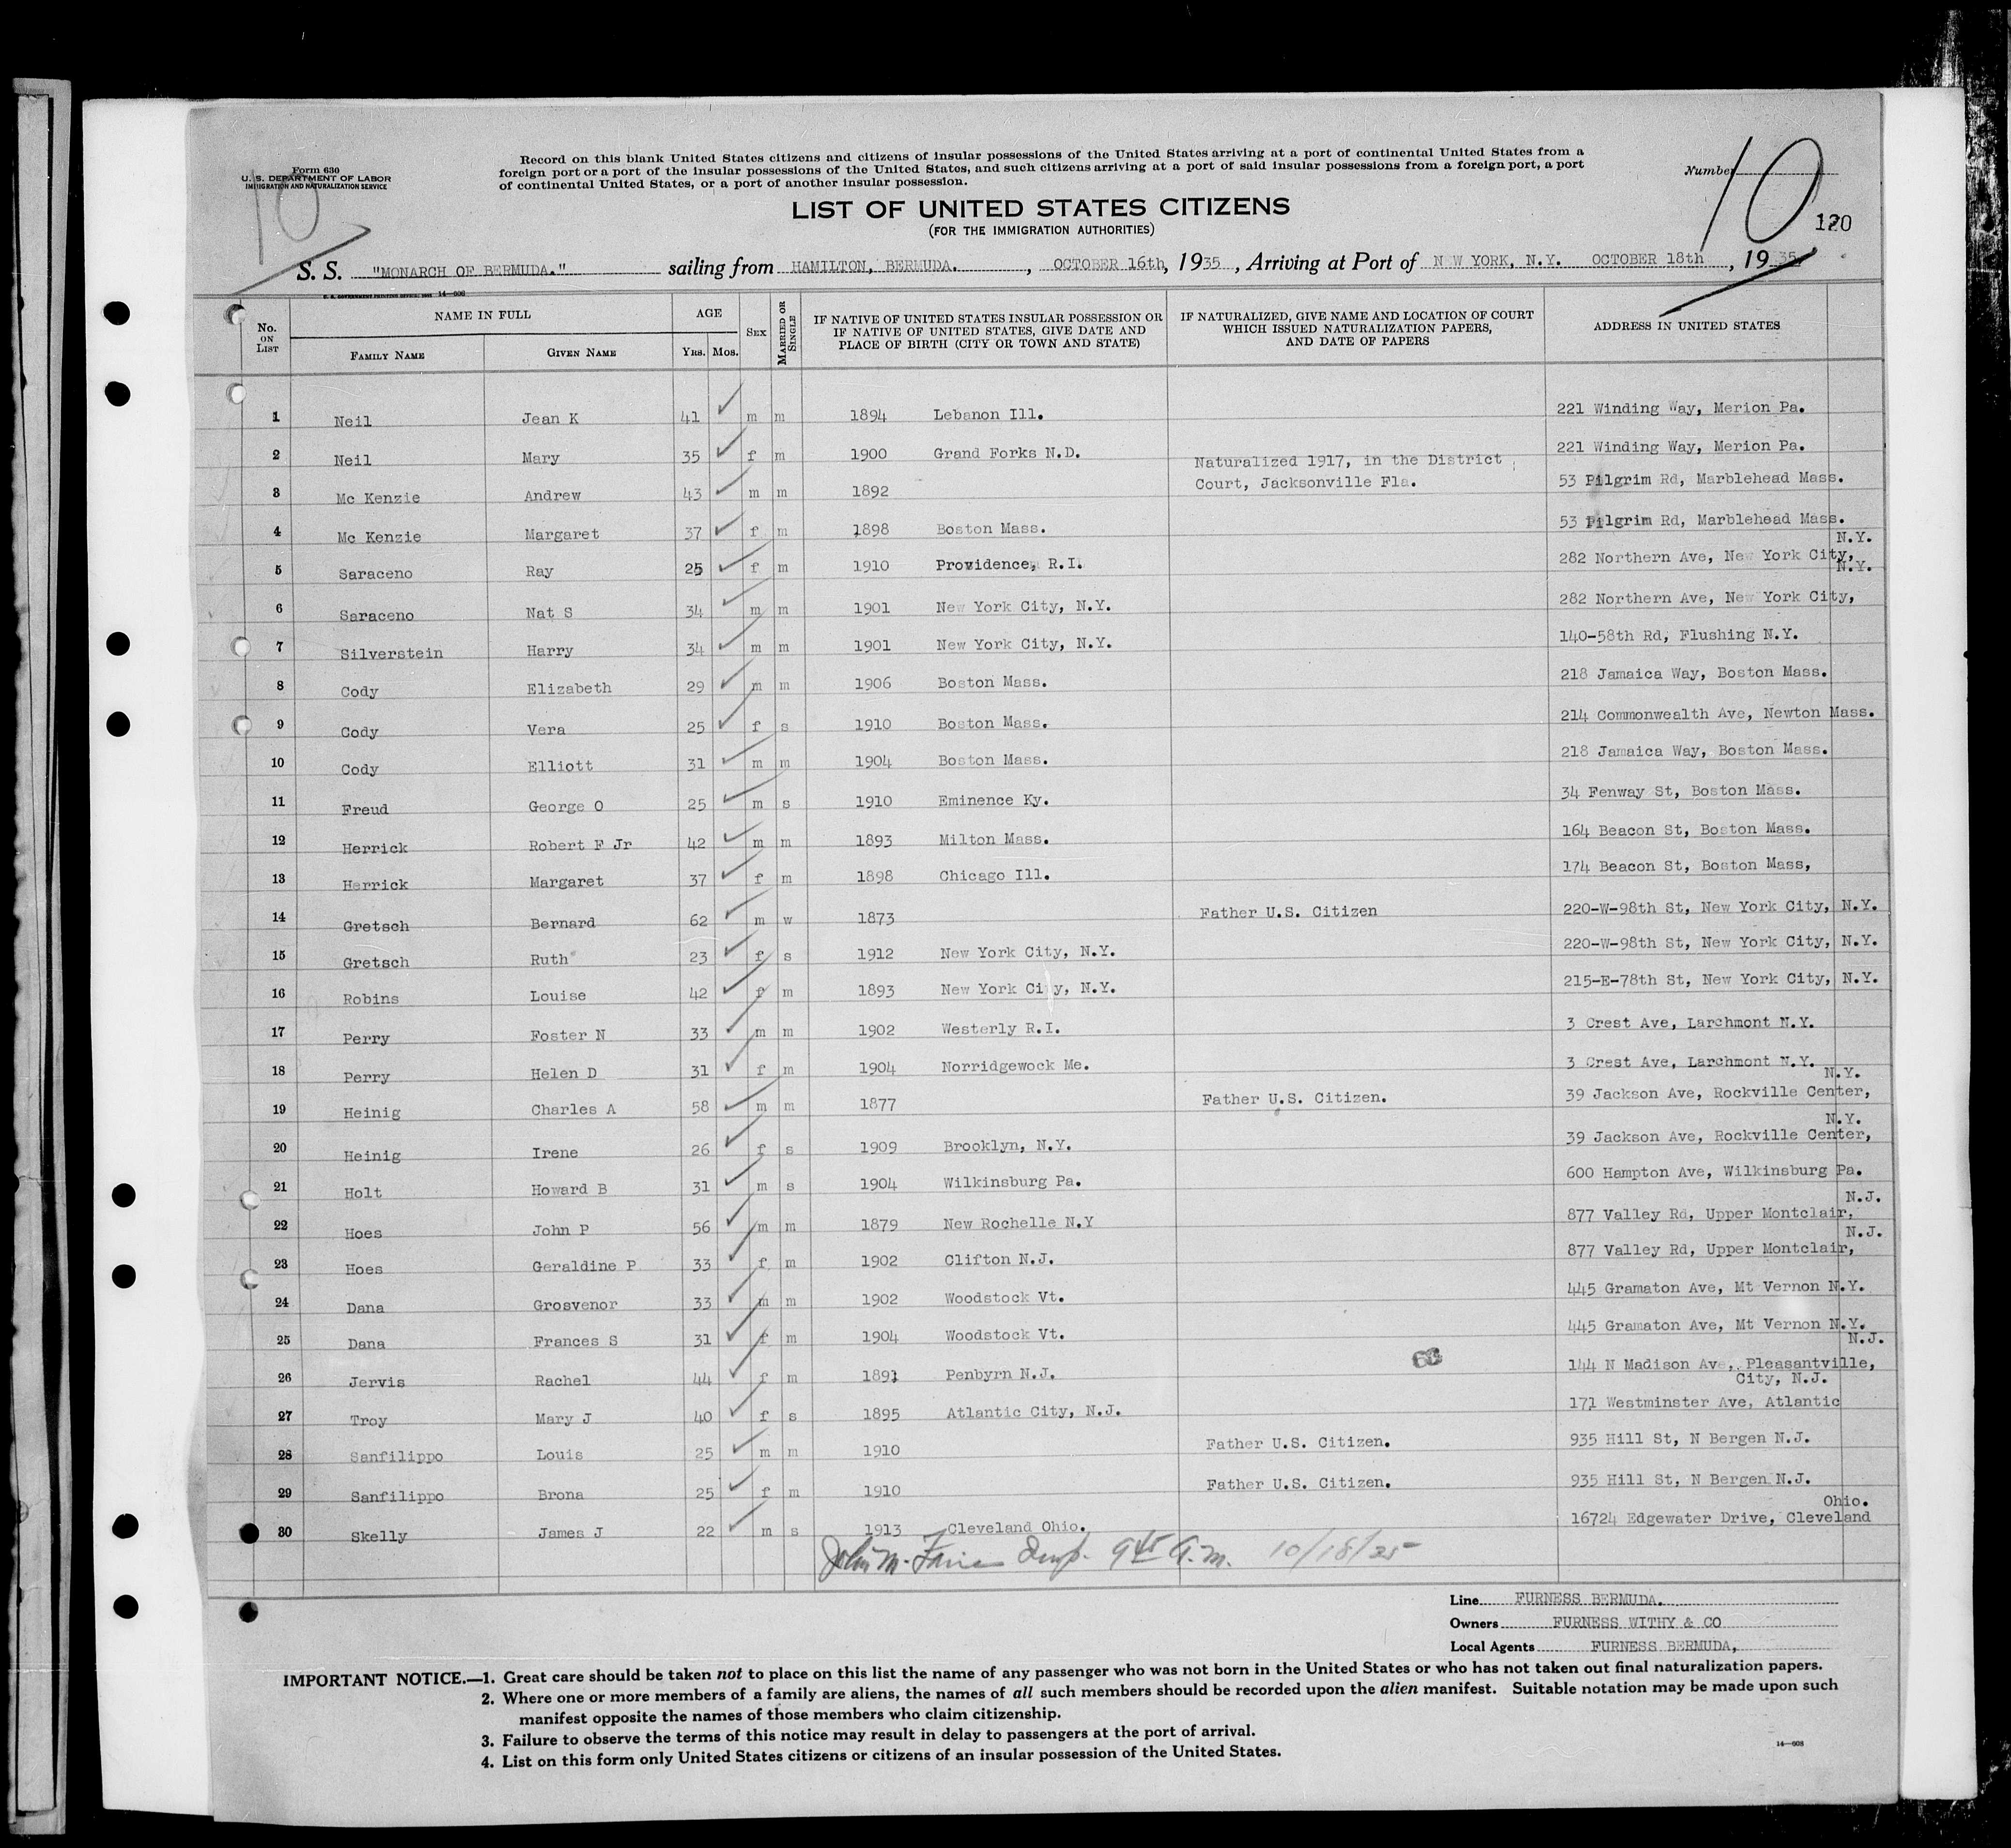 Form 630
U. S. DEPARTMENT OF LABOR
IMMIGRATION AND NATURALIZATION SERVICE
10
Record on this blank United States citizens and citizens of insular possessions of the United States arriving at a port of continental United States from a
foreign port or a port of the insular possessions of the United States, and such citizens arriving at a port of said insular possessions from a foreign port, a port
of continental United States, or a port of another insular possession.
Number 10
120
LIST OF UNITED STATES CITIZENS
(FOR THE IMMIGRATION AUTHORITIES)
S. S. "MONARCH OF BERMUDA." sailing from HAMILTON, BERMUDA. , OCTOBER 16th, 1935 , Arriving at Port of NEW YORK, N.Y. OCTOBER 18th , 1935
U. S. GOVERNMENT PRINTING OFFICE: 14—608
No. ON LIST NAME IN FULL FAMILY NAME GIVEN NAME AGE YRS. MOS. SEX MARRIED OR SINGLE IF NATIVE OF UNITED STATES INSULAR POSSESSION OR IF NATIVE OF UNITED STATES, GIVE DATE AND PLACE OF BIRTH (CITY OR TOWN AND STATE) IF NATURALIZED, GIVE NAME AND LOCATION OF COURT WHICH ISSUED NATURALIZATION PAPERS, AND DATE OF PAPERS ADDRESS IN UNITED STATES
1 Neil Jean K 41 m m 1894 Lebanon Ill. 221 Winding Way, Merion Pa.
2 Neil Mary 35 f m 1900 Grand Forks N.D. 221 Winding Way, Merion Pa.
3 Mc Kenzie Andrew 43 m m 1892 Naturalized 1917, in the District Court, Jacksonville Fla. 53 Pilgrim Rd, Marblehead Mass.
4 Mc Kenzie Margaret 37 f m 1898 Boston Mass. 53 Pilgrim Rd, Marblehead Mass.
5 Saraceno Ray 25 f m 1910 Providence, R.I. 282 Northern Ave, New York City, N.Y.
6 Saraceno Nat S 34 m m 1901 New York City, N.Y. 282 Northern Ave, New York City, N.Y.
7 Silverstein Harry 34 m m 1901 New York City, N.Y. 140-58th Rd, Flushing N.Y.
8 Cody Elizabeth 29 m m 1906 Boston Mass. 218 Jamaica Way, Boston Mass.
9 Cody Vera 25 f s 1910 Boston Mass. 214 Commonwealth Ave, Newton Mass.
10 Cody Elliott 31 m m 1904 Boston Mass. 218 Jamaica Way, Boston Mass.
11 Freud George O 25 m s 1910 Eminence Ky. 34 Fenway St, Boston Mass.
12 Herrick Robert F Jr 42 m m 1893 Milton Mass. 164 Beacon St, Boston Mass.
13 Herrick Margaret 37 f m 1898 Chicago Ill. 174 Beacon St, Boston Mass,
14 Gretsch Bernard 62 m w 1873 Father U.S. Citizen 220-W-98th St, New York City, N.Y.
15 Gretsch Ruth 23 f s 1912 New York City, N.Y. 220-W-98th St, New York City, N.Y.
16 Robins Louise 42 f m 1893 New York City, N.Y. 215-E-78th St, New York City, N.Y.
17 Perry Foster N 33 m m 1902 Westerly R.I. 3 Crest Ave, Larchmont N.Y.
18 Perry Helen D 31 f m 1904 Norridgewock Me. 3 Crest Ave, Larchmont N.Y.
19 Heinig Charles A 58 m m 1877 Father U.S. Citizen. 39 Jackson Ave, Rockville Center, N.Y.
20 Heinig Irene 26 f s 1909 Brooklyn, N.Y. 39 Jackson Ave, Rockville Center, N.Y.
21 Holt Howard B 31 m s 1904 Wilkinsburg Pa. 600 Hampton Ave, Wilkinsburg Pa.
22 Hoes John P 56 m m 1879 New Rochelle N.Y 877 Valley Rd, Upper Montclair, N.J.
23 Hoes Geraldine P 33 f m 1902 Clifton N.J. 877 Valley Rd, Upper Montclair, N.J.
24 Dana Grosvenor 33 m m 1902 Woodstock Vt. 445 Gramaton Ave, Mt Vernon N.Y.
25 Dana Frances S 31 f m 1904 Woodstock Vt. 445 Gramaton Ave, Mt Vernon N.Y.
26 Jervis Rachel 44 f m 1891 Penbyrn N.J. 144 N Madison Ave, Pleasantville, N.J.
27 Troy Mary J 40 f s 1895 Atlantic City, N.J. 171 Westminster Ave, Atlantic City, N.J.
28 Sanfilippo Louis 25 m m 1910 Father U.S. Citizen. 935 Hill St, N Bergen N.J.
29 Sanfilippo Brona 25 f m 1910 Father U.S. Citizen. 935 Hill St, N Bergen N.J.
30 Skelly James J 22 m s 1913 Cleveland Ohio. 16724 Edgewater Drive, Cleveland Ohio.
John M. Insp. 9 45 A.M. 10/18/35
Line FURNESS BERMUDA.
Owners FURNESS WITHY & CO
Local Agents FURNESS BERMUDA,
IMPORTANT NOTICE.—1. Great care should be taken not to place on this list the name of any passenger who was not born in the United States or who has not taken out final naturalization papers.
2. Where one or more members of a family are aliens, the names of all such members should be recorded upon the alien manifest. Suitable notation may be made upon such
manifest opposite the names of those members who claim citizenship.
3. Failure to observe the terms of this notice may result in delay to passengers at the port of arrival.
4. List on this form only United States citizens or citizens of an insular possession of the United States.
14—608